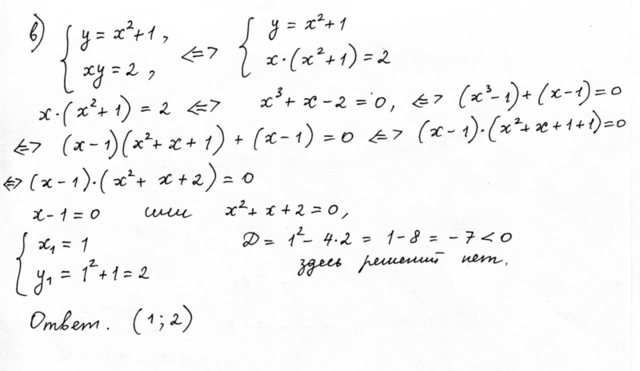 в) { y = x²+1, <=> { y = x²+1
xy = 2, x·(x²+1) = 2
x·(x²+1) = 2 <=> x³+x-2 = 0, <=> (x³-1)+(x-1)=0
<=> (x-1)(x²+x+1)+(x-1) = 0 <=> (x-1)·(x²+x+1+1)=0
<=> (x-1)·(x²+x+2) = 0
x-1=0 или x²+x+2=0,
{ x₁ = 1 D = 1²-4·2 = 1-8 = -7 < 0
y₁ = 1²+1 = 2 здесь решений нет.
Ответ. (1; 2)